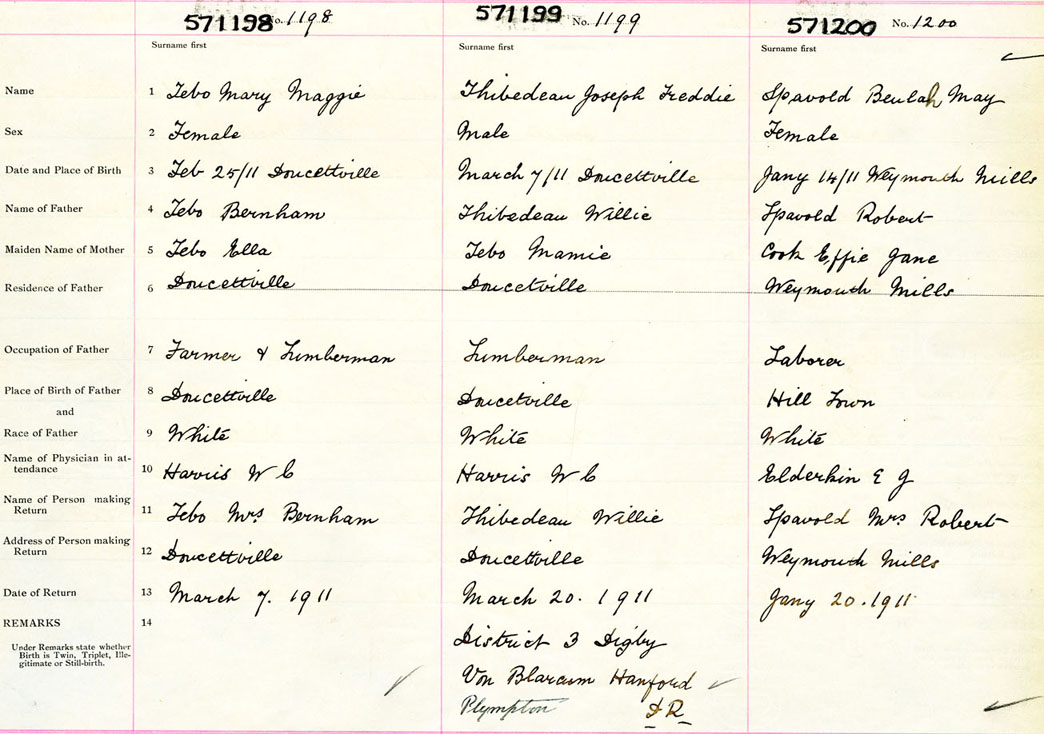 571198 No. 1198 571199 No. 1199 571200 No. 1200
Surname first Surname first Surname first
Name 1 Tebo Mary Maggie Thibedeau Joseph Freddie Spavold Beulah May
Sex 2 Female Male Female
Date and Place of Birth 3 Feb 25/11 Doucettville March 7/11 Doucettville Jany 14/11 Weymouth Mills
Name of Father 4 Tebo Bernham Thibedeau Willie Spavold Robert
Maiden Name of Mother 5 Tebo Ella Tebo Mamie Cook Effie Jane
Residence of Father 6 Doucettville Doucetville Weymouth Mills
Occupation of Father 7 Farmer & Lumberman Lumberman Laborer
Place of Birth of Father 8 Doucettville Doucetville Hill Town
and
Race of Father 9 White White White
Name of Physician in at-
tendance 10 Harris W C Harris W C Elderkin E J
Name of Person making
Return 11 Tebo Mrs Bernham Thibedeau Willie Spavold Mrs Robert
Address of Person making
Return 12 Doucettville Doucettville Weymouth Mills
Date of Return 13 March 7. 1911 March 20. 1911 Jany 20. 1911
REMARKS 14
Under Remarks state whether
Birth is Twin, Triplet, Ille-
gitimate or Still-birth.
District 3 Digby
Von Blarcum Hanford
Plympton D R